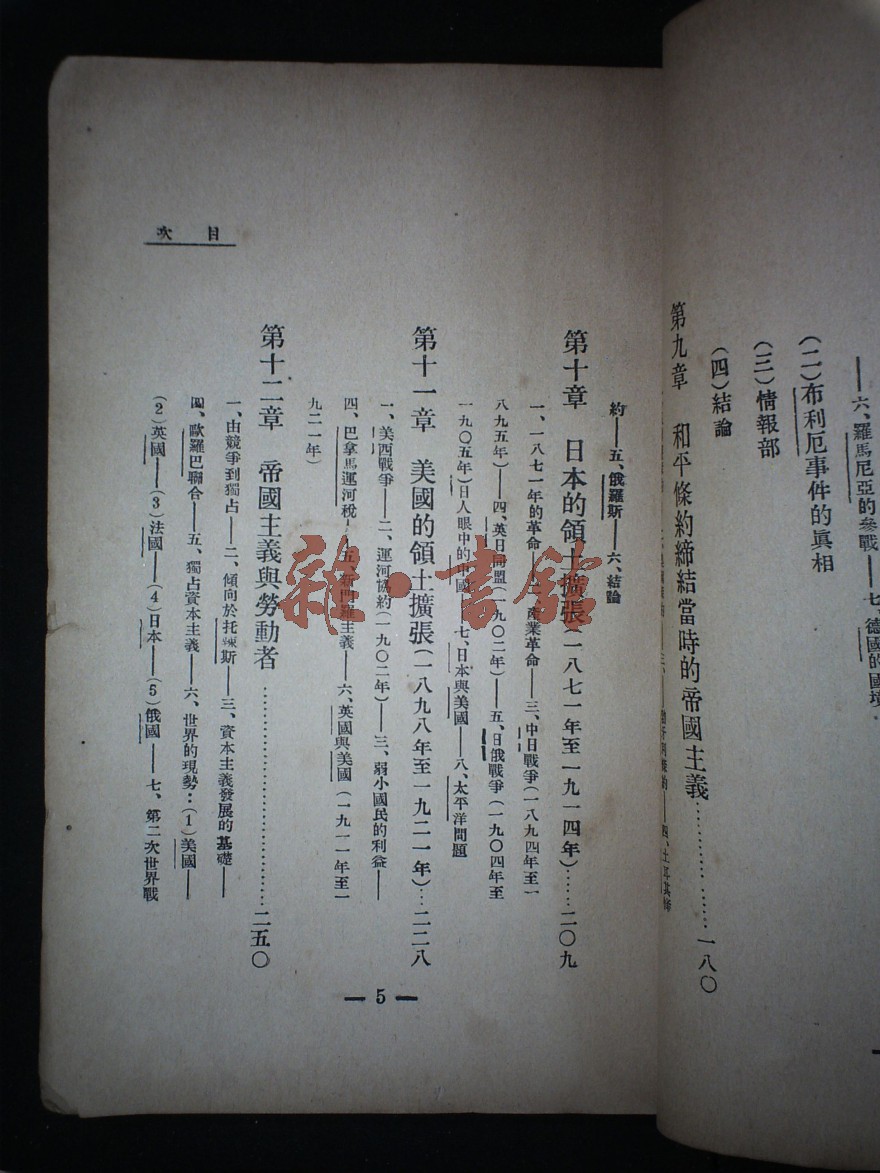 ——六、羅馬尼亞的參戰——七、德國的國境
(二)布利厄事件的眞相
(三)情報部
(四)結論
第九章 和平條約締結當時的帝國主義……………一八〇
四、土耳其
約——五、俄羅斯——六、結論
第十章 日本的領土擴張(一八七一年至一九一四年)……二〇九
一、一八七一年的革命——二、產業革命——三、中日戰爭(一八九四年至一
八九五年)——四、英日同盟(一九〇二年)——五、日俄戰爭(一九〇四年至
一九〇五年)日人眼中的中國——七、日本與美國——八、太平洋問題
第十一章 美國的領土擴張(一八九八年至一九二一年)…二二八
一、美西戰爭——二、運河協約(一九〇二年)——三、弱小國民的利益——
四、巴拿馬運河稅——五、新門羅主義——六、英國與美國(一九一一年至一
九二一年)
第十二章 帝國主義與勞動者……………………二五〇
一、由競爭到獨占——二、傾向於托辣斯——三、資本主義發展的基礎——
四、歐羅巴聯合——五、獨占資本主義——六、世界的現勢:(1)美國——
(2)英國——(3)法國——(4)日本——(5)俄國——七、第二次世界戰
目次
— 5 —
雜·書館